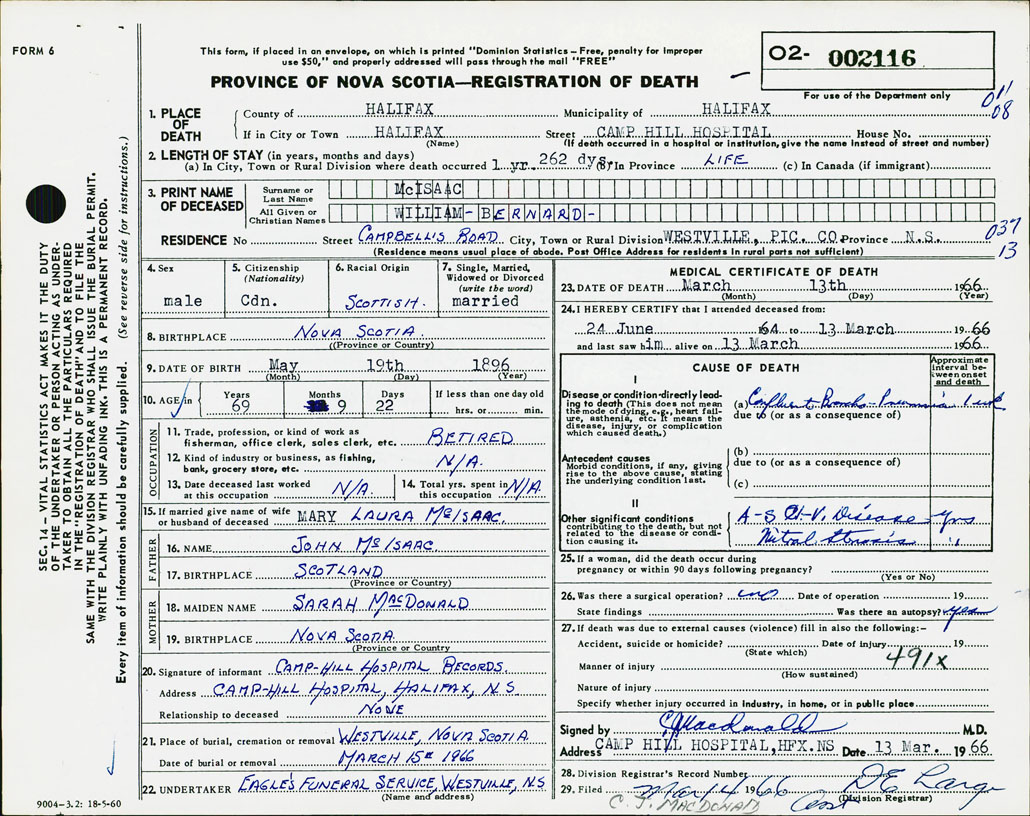 FORM 6
This form, if placed in an envelope, on which is printed "Dominion Statistics – Free, penalty for improper
use $50," and properly addressed will pass through the mail "FREE"
PROVINCE OF NOVA SCOTIA—REGISTRATION OF DEATH
O2- 002116
For use of the Department only
011
08
1. PLACE OF DEATH
County of HALIFAX Municipality of HALIFAX
If in City or Town HALIFAX Street CAMP HILL HOSPITAL House No.
(Name) (If death occurred in a hospital or institution, give the name instead of street and number)
2. LENGTH OF STAY (in years, months and days)
(a) In City, Town or Rural Division where death occurred 1 yr. 262 dys. (b) In Province LIFE (c) In Canada (if immigrant)
3. PRINT NAME OF DECEASED
Surname or Last Name McISAAC
All Given or Christian Names WILLIAM-BERNARD-
RESIDENCE No Street CAMPBELLS ROAD City, Town or Rural Division WESTVILLE, PIC. CO. Province N.S.
(Residence means usual place of abode. Post Office Address for residents in rural parts not sufficient)
037
13
4. Sex
male
5. Citizenship
(Nationality)
Cdn.
6. Racial Origin
SCOTTISH.
7. Single, Married,
Widowed or Divorced
(write the word)
married
8. BIRTHPLACE NOVA SCOTIA.
(Province or Country)
9. DATE OF BIRTH May 19th 1896
(Month) (Day) (Year)
10. AGE Years 69 Months 9 Days 22 If less than one day old
hrs. or min.
OCCUPATION
11. Trade, profession, or kind of work as
fisherman, office clerk, sales clerk, etc. RETIRED
12. Kind of industry or business, as fishing,
bank, grocery store, etc. N/A.
13. Date deceased last worked
at this occupation N/A.
14. Total yrs. spent in
this occupation N/A
15. If married give name of wife
or husband of deceased MARY LAURA McISAAC.
FATHER
16. NAME JOHN McISAAC.
17. BIRTHPLACE SCOTLAND
(Province or Country)
MOTHER
18. MAIDEN NAME SARAH MACDONALD
19. BIRTHPLACE NOVA SCOTIA.
(Province or Country)
20. Signature of informant CAMP-HILL HOSPITAL RECORDS.
Address CAMP-HILL HOSPITAL, HALIFAX, N.S
Relationship to deceased NONE
21. Place of burial, cremation or removal WESTVILLE, NOVA SCOTIA
Date of burial or removal MARCH 15th 1966
22. UNDERTAKER EAGLE'S FUNERAL SERVICE, WESTVILLE, N.S
(Name and address)
MEDICAL CERTIFICATE OF DEATH
23. DATE OF DEATH March 13th 1966
(Month) (Day) (Year)
24. I HEREBY CERTIFY that I attended deceased from:
24 June 64 to 13 March 1966
and last saw him alive on 13 March 1966
CAUSE OF DEATH
Approximate
interval be-
tween onset
and death
I
Disease or condition directly lead-
ing to death (This does not mean
the mode of dying, e.g., heart fail-
ure, asthenia, etc. It means the
disease, injury, or complication
which caused death.)
(a) Confluent Broncho-Pneumonia 1 wk
due to (or as a consequence of)
Antecedent causes
Morbid conditions, if any, giving
rise to the above cause, stating
the underlying condition last.
(b)
due to (or as a consequence of)
(c)
II
Other significant conditions
contributing to the death, but not
related to the disease or condi-
tion causing it.
A-S H-V. Disease yrs
Mitral Stenosis "
25. If a woman, did the death occur during
pregnancy or within 90 days following pregnancy?
(Yes or No)
26. Was there a surgical operation? no Date of operation 19
State findings Was there an autopsy? yes
27. If death was due to external causes (violence) fill in also the following:–
Accident, suicide or homicide? Date of injury 19
(State which)
491x
Manner of injury
(How sustained)
Nature of injury
Specify whether injury occurred in industry, in home, or in public place
Signed by CJMacdonald M.D.
Address CAMP HILL HOSPITAL, HFX. NS Date 13 Mar. 1966
28. Division Registrar's Record Number
29. Filed Mar 14 1966
(Division Registrar)
C. J. MACDONALD
SEC. 14 – VITAL STATISTICS ACT MAKES IT THE DUTY
OF THE UNDERTAKER OR PERSON ACTING AS UNDER-
TAKER TO OBTAIN ALL THE PARTICULARS REQUIRED
IN THE "REGISTRATION OF DEATH" AND TO FILE THE
SAME WITH THE DIVISION REGISTRAR WHO SHALL ISSUE THE BURIAL PERMIT.
WRITE PLAINLY WITH UNFADING INK. THIS IS A PERMANENT RECORD.
Every item of information should be carefully supplied. (See reverse side for instructions.)
9004-3.2: 18-5-60